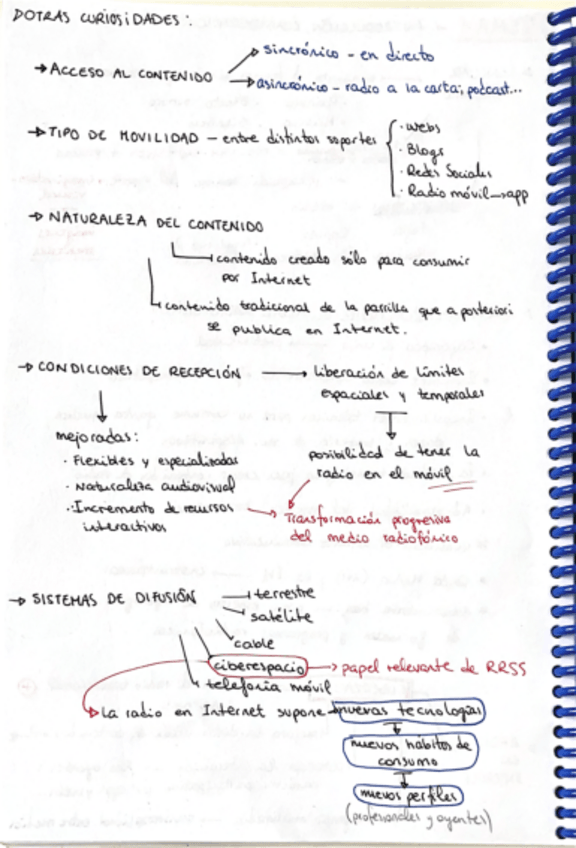 DOTRAS CURIOSIDADES:
→ ACCESO AL CONTENIDO
sincrónico - en directo
asincrónico - radio a la carta, podcast...
→ TIPO DE MOVILIDAD - entre distintos soportes
· webs
· Blogs
· Redes Sociales
· Radio móvil → app
→ NATURALEZA DEL CONTENIDO
contenido creado sólo para consumir
por Internet
contenido tradicional de la parrilla que a posteriori
se publica en Internet.
→ CONDICIONES DE RECEPCIÓN → liberación de límites
espaciales y temporales
mejoradas:
· Flexibles y especializadas
· Naturaleza audiovisual
· Incremento de recursos
interactivos
posibilidad de tener la
radio en el móvil
Transformación progresiva
del medio radiofónico
→ SISTEMAS DE DIFUSIÓN
terrestre
satélite
cable
ciberespacio → papel relevante de RRSS
telefonía móvil
La radio en Internet supone → nuevas tecnologías
nuevos hábitos de
consumo
nuevos perfiles
(profesionales y oyentes)